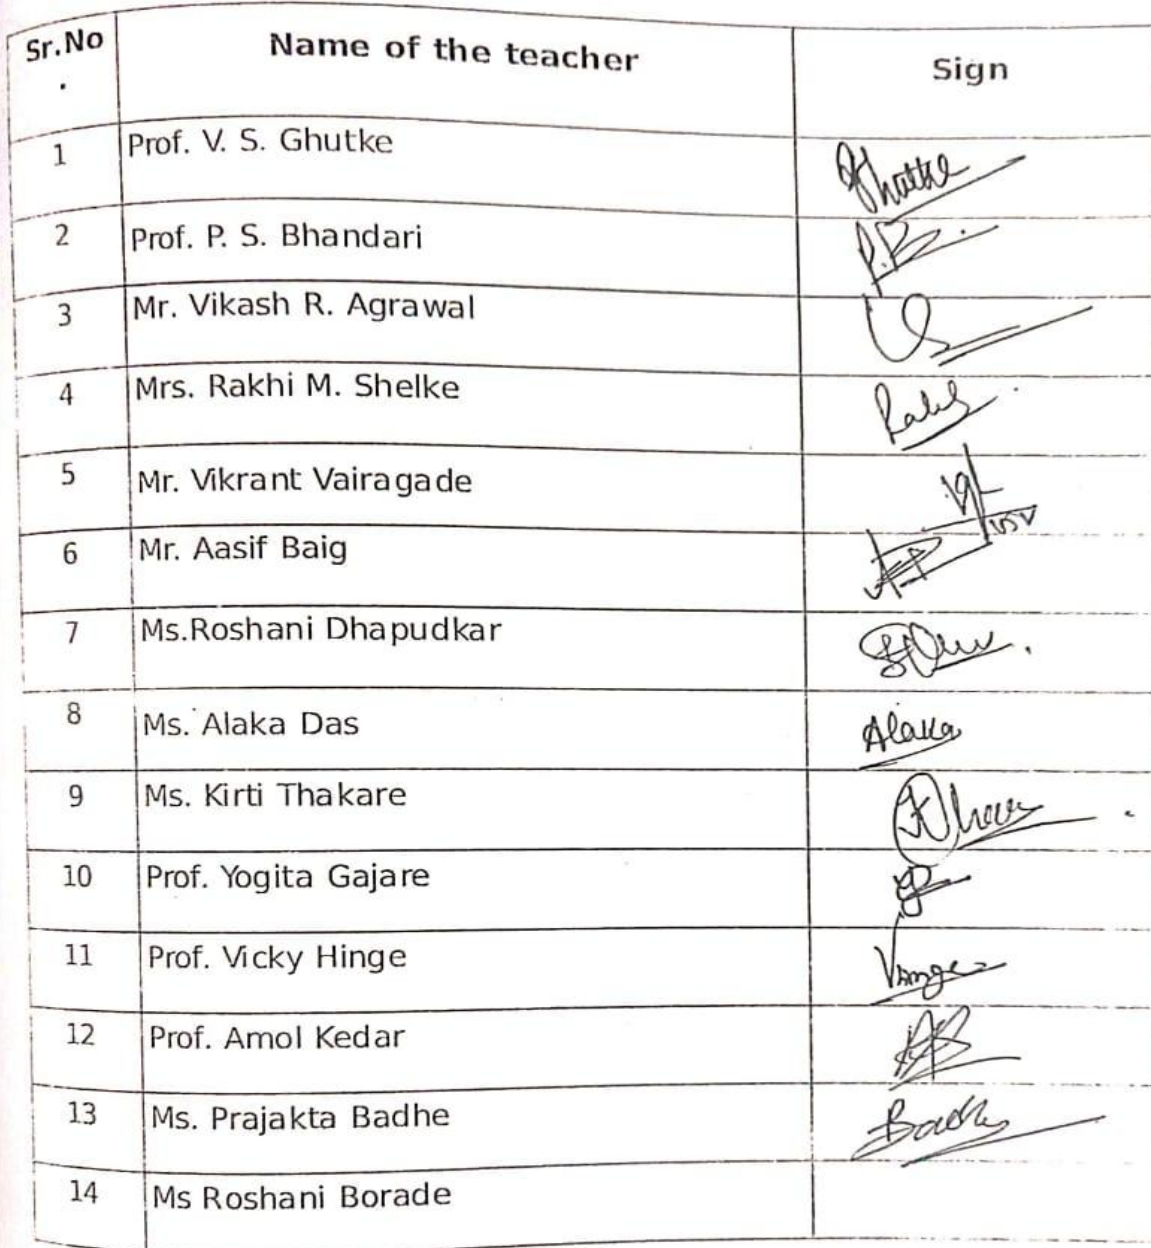 Sr.No Name of the teacher Sign
.
1 Prof. V. S. Ghutke Ghutke
2 Prof. P. S. Bhandari P.B.
3 Mr. Vikash R. Agrawal
4 Mrs. Rakhi M. Shelke Rakhi
5 Mr. Vikrant Vairagade
6 Mr. Aasif Baig
7 Ms.Roshani Dhapudkar
8 Ms. Alaka Das Alaka
9 Ms. Kirti Thakare
10 Prof. Yogita Gajare
11 Prof. Vicky Hinge
12 Prof. Amol Kedar
13 Ms. Prajakta Badhe Badhe
14 Ms Roshani Borade